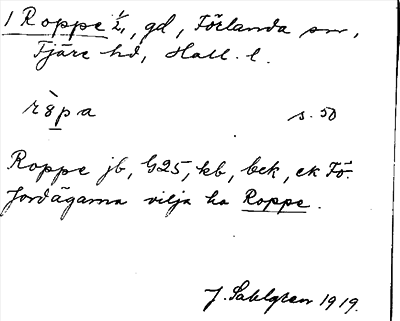 1 Roppe 1/2, gd, Förlanda sn,
Fjäre hd, Hall. l.
r8̀pa s. 50
Roppe jb, G25, kb, bek, ek Fö.
Jordägarna vilja ha Roppe.
J. Sahlgren 1919.